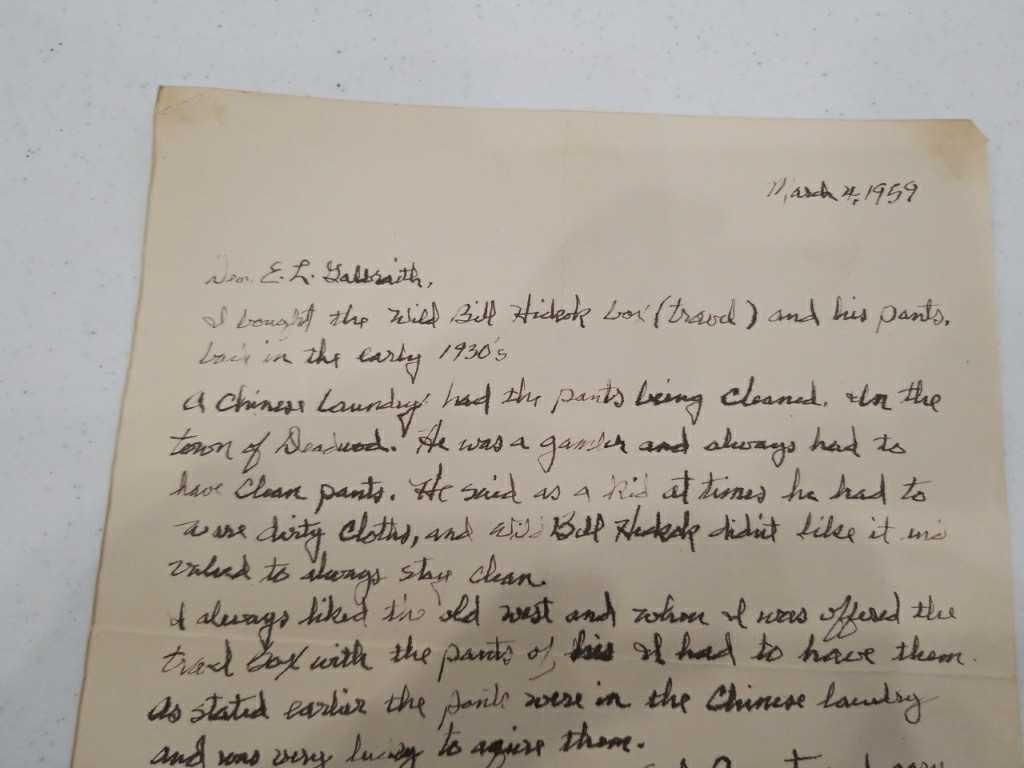 March 4, 1959
Dear E. L. Galbraith,
I bought the Wild Bill Hickok box (travel) and his pants.
back in the early 1930's
A Chinese Laundry had the pants being cleaned. In the
town of Deadwod. He was a gambler and always had to
have clean pants. He said as a kid at times he had to
were dirty cloths, and Wild Bill Hickok didn't like it
valued to always stay clean.
I always liked the old west and when I was offered the
travel box with the pants of his I had to have them.
As stated earlier the pants were in the Chinese laundry
and was very lucky to aquire them.